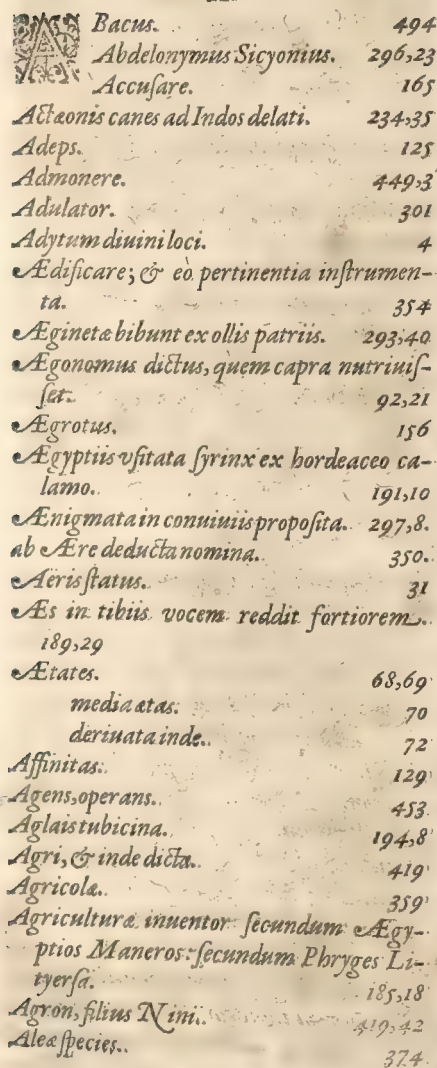 ABacus. 494
Abdelonymus Sicyonius. 296,23
Accuſare. 165
Actæonis canes ad Indos delati. 234,35
Adeps. 125
Admonere. 449,3
Adulator. 301
Adytum diuini loci. 4
Ædificare; & eò pertinentia inſtrumen-
ta. 354
Æginetæ bibunt ex ollis patriis. 293,40
Ægonomus dictus, quem capra nutriuiſ-
ſet. 92,21
Ægrotus. 156
Ægyptiis vſitata ſyrinx ex hordeaceo ca-
lamo. 191,10
Ænigmata in conuiuiis propoſita. 297,8.
ab Ære deducta nomina. 350.
Aëris ſtatus. 31
Æs in tibiis vocem reddit fortiorem.
189,29
Ætates. 68,69
media ætas. 70
deriuata inde. 72
Affinitas. 129
Agens, operans. 453
Aglais tubicina. 194,8
Agri, & inde dicta. 419
Agricolæ. 359
Agriculturæ inuentor ſecundum Ægy-
ptios Maneros: ſecundum Phryges Li-
tyerſa. 185,18
Agron, filius Nini. 419,42
Aleæ ſpecies. 374